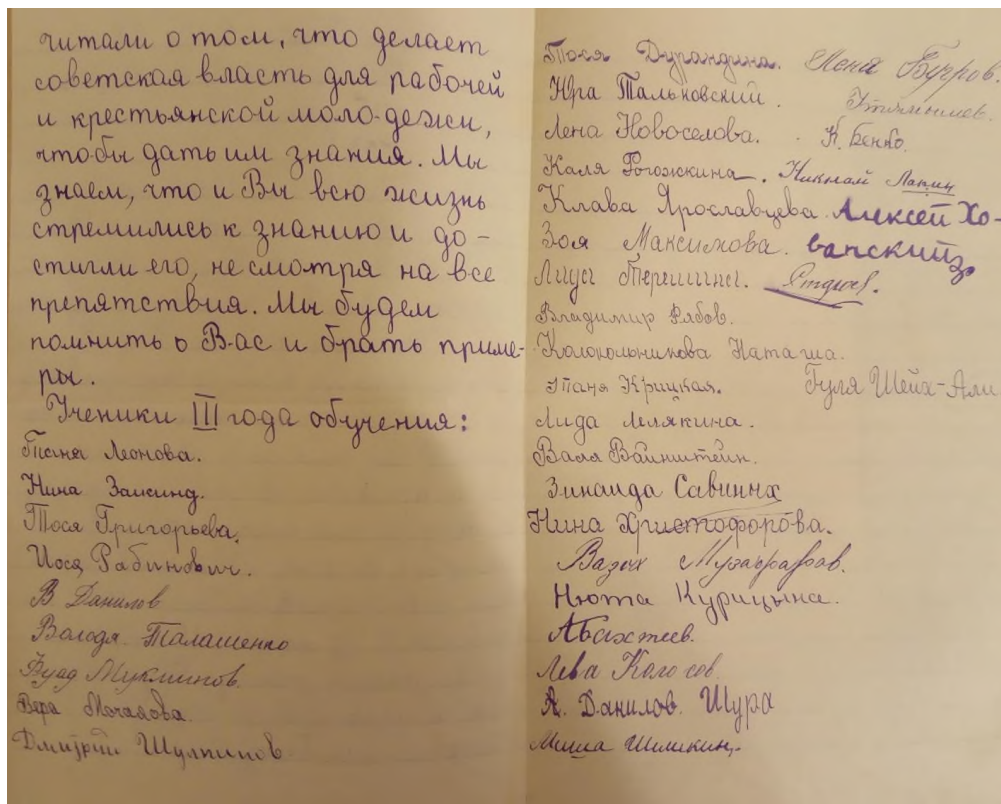 читали о том, что делает
советская власть для рабочей
и крестьянской моло-дежи,
чтобы дать им знания. Мы
знаем, что и Вы всю жизнь
стремились к знанию и до-
стигли его, несмотря на все
препятствия. Мы будем
помнить о Вас и брать приме-
ры.
Ученики III года обучения:
Таня Леонова.
Нина Заксинд.
Тося Григорьева.
Иося Рабинович.
В Данилов
Володя Талашенко
Фуад Мукминов.
Вера Мочалова.
Дмитрий Шулпинов.
Тося Дурандина. Леня Бугров.
Юра Тальковский.
Лена Новоселова. К. Бенко.
Каля Рогожкина. Николай Лапин
Клава Ярославцева. Алексей Хо-
Зоя Максимова. ванский
Люся Терешина.
Владимир Рябов.
Колокольникова Наташа.
Таня Крицкая. Гуля Шейх-Али
Лида Малякина.
Валя Вайнштейн.
Зинаида Савиных
Нина Христофорова.
Музафаров.
Нюта Курицына.
Абахтеев.
Лева Колосов.
А. Данилов. Шура
Миша Шишкин.